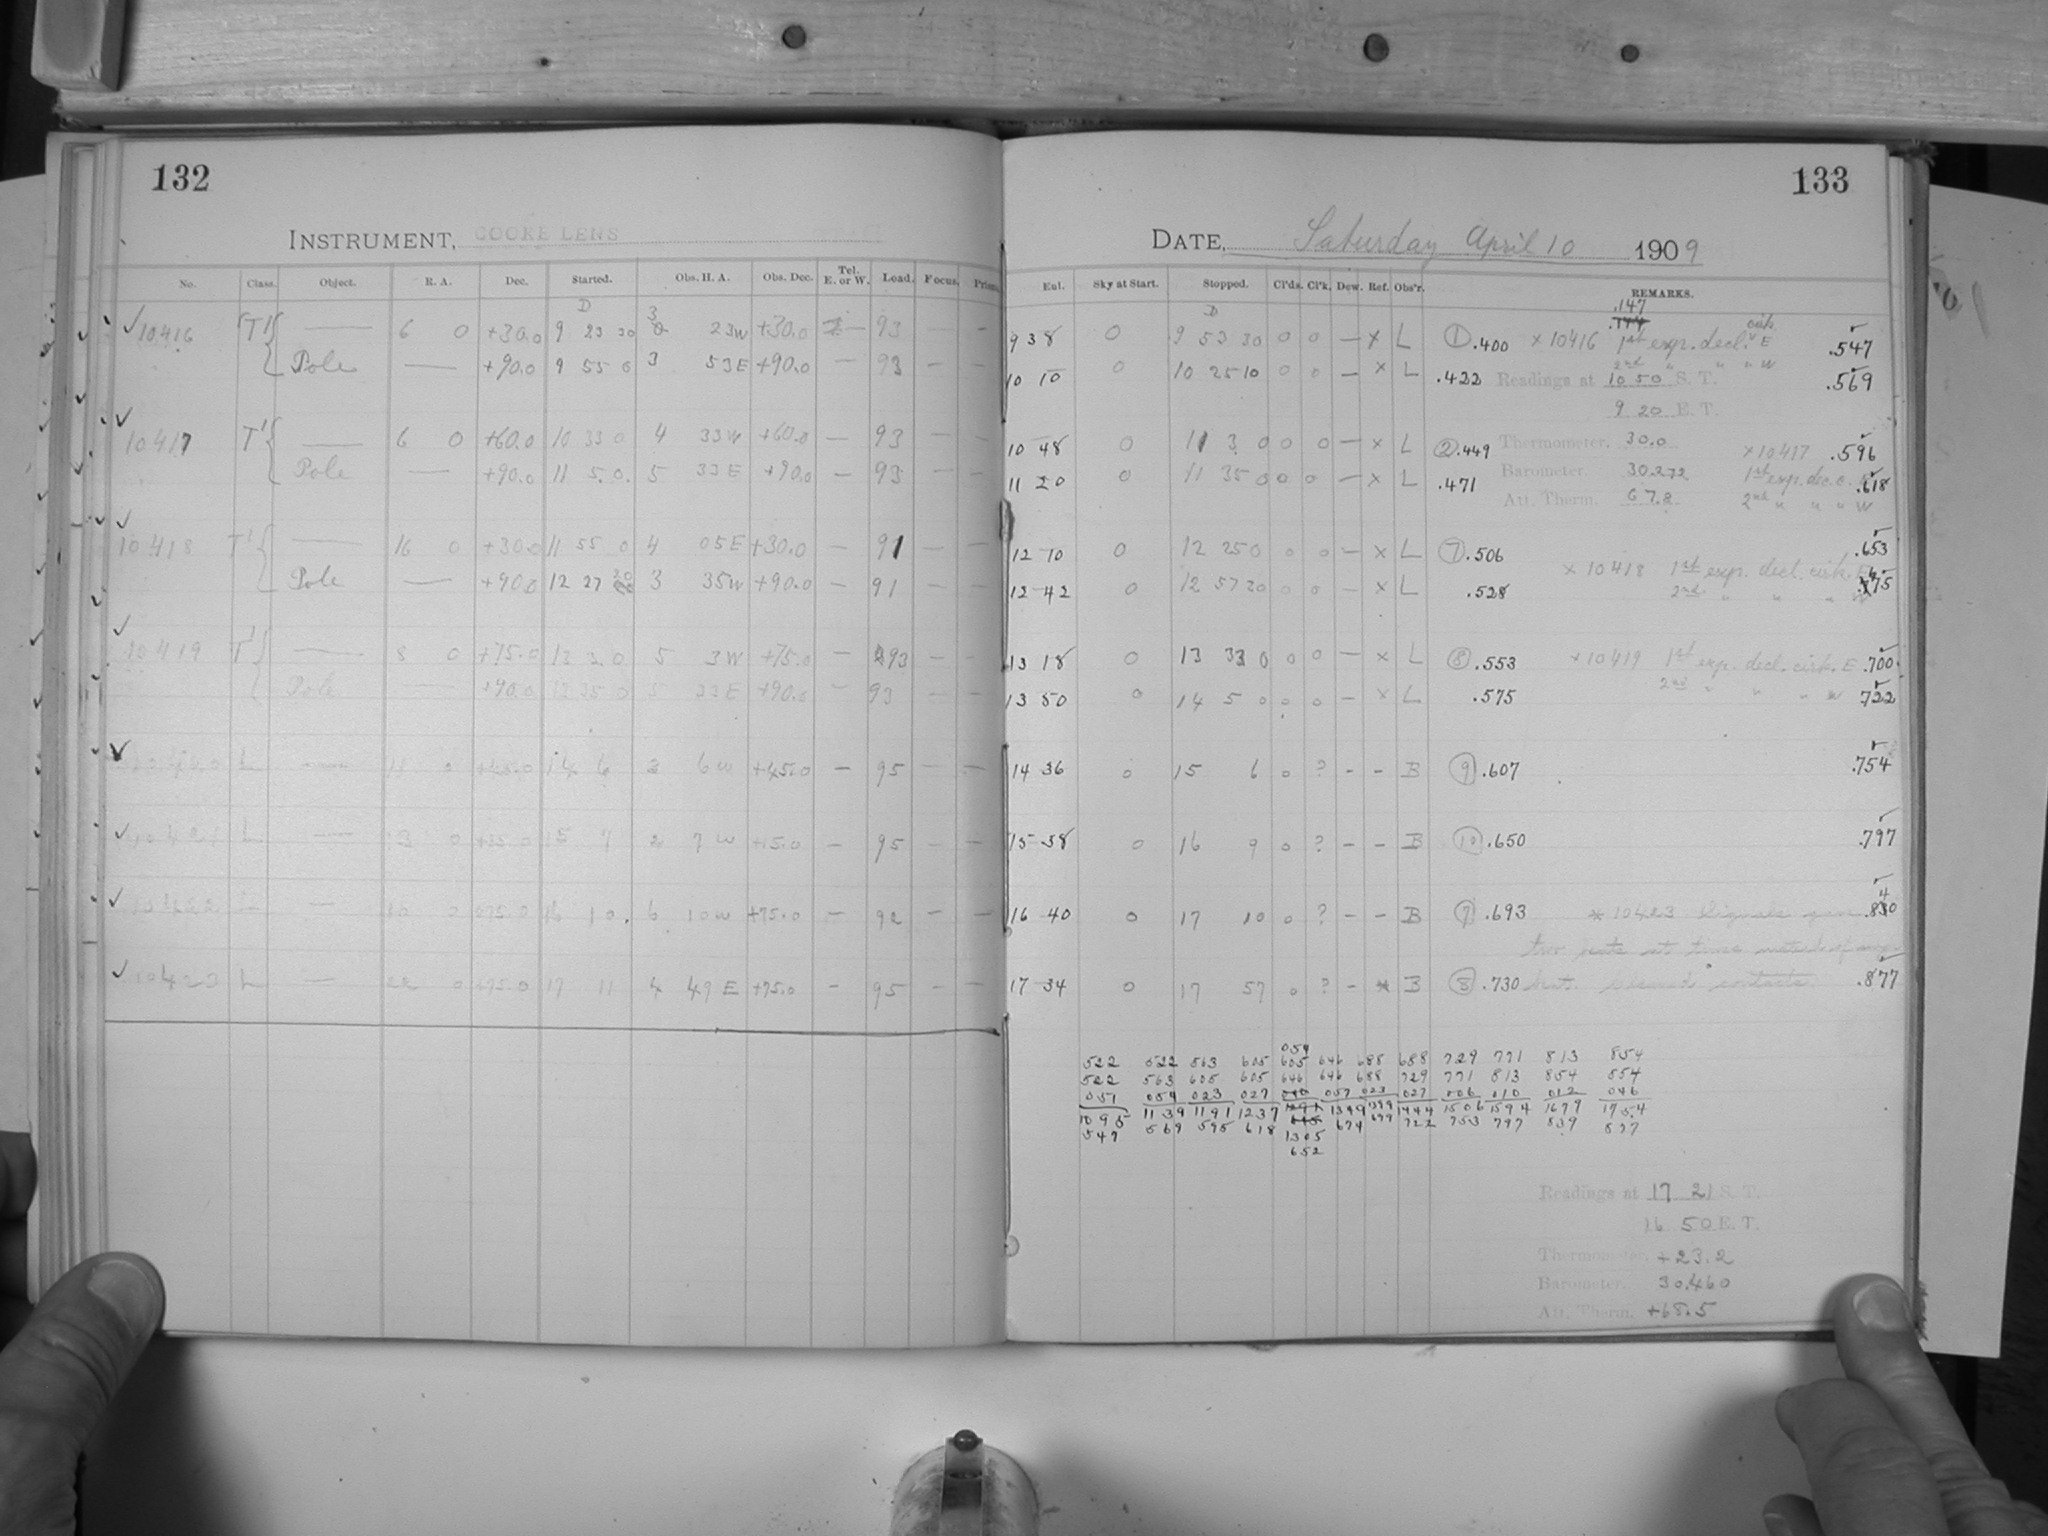 132
INSTRUMENT, COOKE LENS
No. Class. Object. R. A. Dec. Started. Obs. H. A. Obs. Dec. Tel. E. or W. Load. Focus. Prism
D
✓ 10416 T' — 6 0 +30.0 9 23 30 3 23W +30.0 — 93 —
Pole — +90.0 9 55 0 3 53E +90.0 — 93 —
✓ 10417 T' — 6 0 +60.0 10 33 0 4 33W +60.0 — 93 — —
Pole — +90.0 11 5 0 5 33E +90.0 — 93 — —
✓ 10418 T' — 16 0 +30.0 11 55 0 4 05E +30.0 — 91 — —
Pole — +90.0 12 27 20 3 35W +90.0 — 91 — —
✓ 10419 T' — 8 0 +75.0 13 3 0 5 3W +75.0 — 93 — —
Pole — +90.0 13 35 0 5 33E +90.0 — 93 — —
✓ 10420 L — 11 0 +45.0 14 6 3 6W +45.0 — 95 — —
✓ 10421 L — 13 0 15 7 2 7W — 95 — —
✓ 10422 L — 10 0 +75.0 16 10 6 10W +75.0 — 92 — —
✓ 10423 L — 22 0 +75.0 17 11 4 49E +75.0 — 95 — —
133
DATE, Saturday April 10 1909
Eul. Sky at Start. Stopped. Cl'ds. Cl'k. Dew. Ref. Obs'r. REMARKS.
.147
D
9 38 0 9 53 30 0 0 — x L ① .400 x 10416 1st exp. decl. cirk. E .547
10 10 0 10 25 10 0 0 — x L .422 2nd " " " W .569
Readings at 10 50 S. T.
9 20 E. T.
10 48 0 11 3 0 0 0 — x L ② .449 Thermometer. 30.0 x 10417 .596
11 20 0 11 35 0 0 0 — x L .471 Barometer. 30.272 1st exp. dec. c. .618
Att. Therm. 67.8 2nd " " " W
12 10 0 12 25 0 0 0 — x L ⑦ .506 .653
x 10418 1st exp. decl. cirk. E
12 42 0 12 57 20 0 0 — x L .528 2nd " " " W 75
13 18 0 13 33 0 0 0 — x L ⑧ .553 x 10419 1st exp. decl. cirk. E .700
13 50 0 14 5 0 0 0 — x L .575 2nd " " " W 722
14 36 0 15 6 0 ? - - B ⑨ .607 .754
15 38 0 16 9 0 ? - - B ⑩ .650 .797
16 40 0 17 10 0 ? - - B ⑦ .693 * 10423 Signals gave
two beats at time instead of one
17 34 0 17 57 0 ? - * B ⑧ .730 beat. cleaned contacts. .877
054
522 522 563 605 605 646 688 688 729 771 813 854
522 563 605 605 646 646 688 729 771 813 854 854
051 054 023 027 057 023 027 006 010 012 046
1095 1139 1191 1237 1349 1399 1444 1506 1594 1679 1754
547 569 595 618 674 699 722 753 797 839 877
1305
652
Readings at 17 21 S. T.
16 50 E. T.
Thermometer. +23.2
Barometer. 30.460
Att. Therm. +68.5